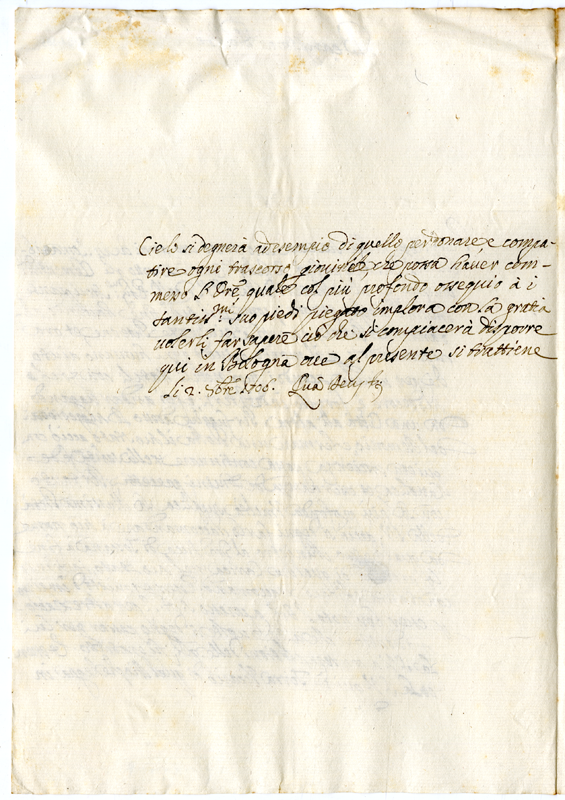 Cielo si degnerà ad esempio di quello perdonare, e compa-
tire ogni trascorso giovinile che possa haver com-
messo l'Ore, quale col più profondo ossequio à i
santiss.mi suo piedi piegato implora con la gratia
valerli far sapere ciò che si compiacerà disporre
qui in Bologna ove al presente si trattiene
li 2. 1706.